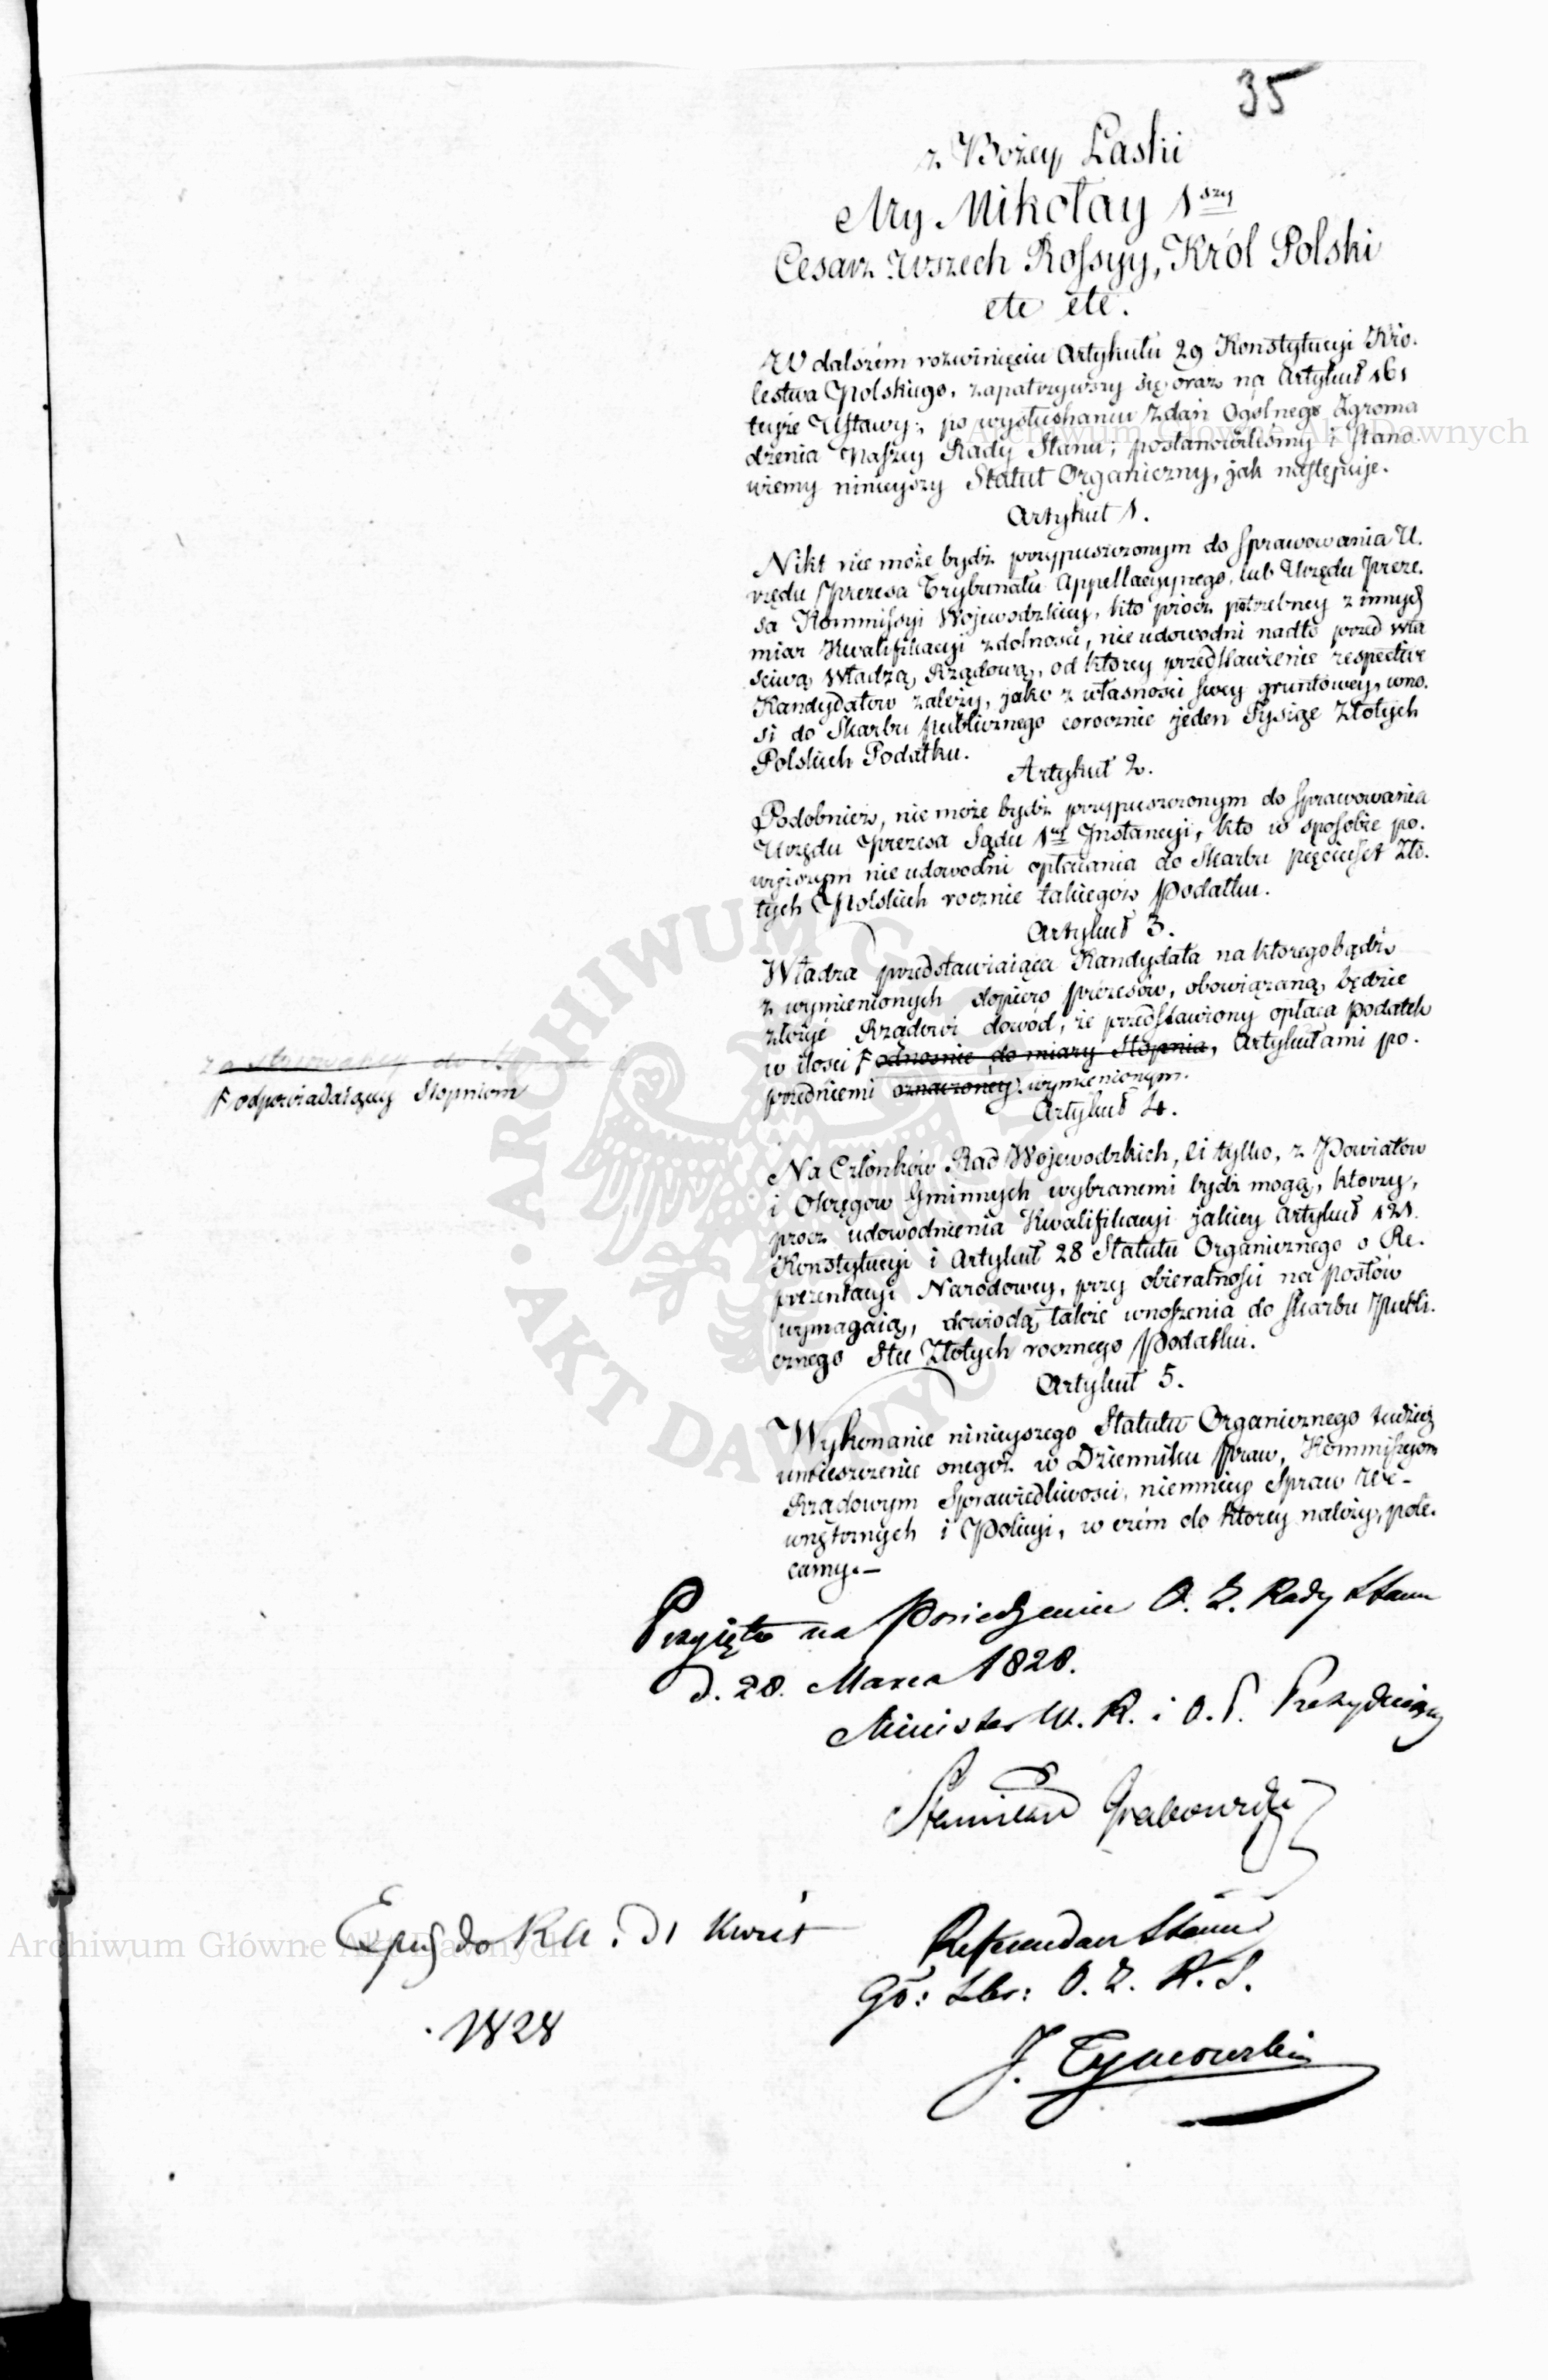 35
z Bożey Łaski
My Mikołay 1szy
Cesarz Wszech Rossyy, Król Polski
etc etc.
W dalszém rozwinięciu Artykułu 29 Konstytucyi Kró-
lestwa Polskiego, zapatrzywszy się oraz na Artykuł 161
teyże Ustawy; po wysłuchaniu Zdań Ogólnego Zgroma
dzenia Naszey Rady Stanu; postanowiliśmy i stano-
wiemy ninieyszy Statut Organiczny, jak następuje.
Artykuł 1.
Nikt nie może bydź przypuszczonym do sprawowania U-
rzędu Prezesa Trybunału Appellacyynego, lub Urzędu Preze-
sa Kommissyi Wojewodzkiey, kto prócz potrzebney z innych
miar Kwalifikacyi zdolności, nie udowodni nadto przed wła
ściwą Władzą Rządową, od którey przedstawienie respective
Kandydatów zależy, jako z własności swey gruntowey, wno-
si do Skarbu publicznego corocznie jeden Tysiąc Złotych
Polskich Podatku.
Artykuł 2.
Podobnież, nie może bydź przypuszczonym do sprawowania
Urzędu Prezesa Sądu 1ey Instancyi, kto w sposobie po-
wyższym nie udowodni opłacania do Skarbu pięciuset Zło-
tych Polskich rocznie takiegoż Podatku.
Artykuł 3.
Władza przedstawiaiąca Kandydata na któregobądź
z wymienionych dopiero Prezesów, obowiązaną będzie
złożyć Rządowi dowód, że przedstawiony opłaca podatek
w ilości F odnośnie do miary Stopnia, Artykułami po-
przedniemi oznaczoney. wymienionym.
za stosowaney do Stopnia
F odpowiadaiącey Stopniom
Artykuł 4.
Na Członków Rad Wojewodzkich, li tylko, z Powiatów
i Okręgów Gminnych wybranemi bydź mogą, którzy,
prócz udowodnienia Kwalifikacyi jakiey Artykuł 121.
Konstytucyi i Artykuł 28 Statutu Organicznego o Re-
prezentacyi Narodowey, przy obieralności na Posłów
wymagaią, dowiodą także wnoszenia do Skarbu Publi-
cznego Stu Złotych rocznego Podatku.
Artykuł 5.
Wykonanie ninieyszego Statutu Organicznego tudzież
umieszczenie onegoż w Dzienniku praw, Kommissyom
Rządowym Sprawiedliwości, niemniey Spraw We-
wnętrznych i Policyi, w czém do którey należy, pole-
camy.–
Przyięto na Posiedzeniu O. Z. Rady Stanu
d. 28. Marca 1828.
Minister W. R. i O. P. Prezyduiący
Stanisław Grabowski
Exped do R.A. d 1 Kwiet
1828
Referendarz Stanu
O. Z. R. S.
J. Tymowski
Archiwum Główne Akt Dawnych
Archiwum Główne Akt Dawnych
ARCHIWUM GŁÓWNE
AKT DAWNYCH